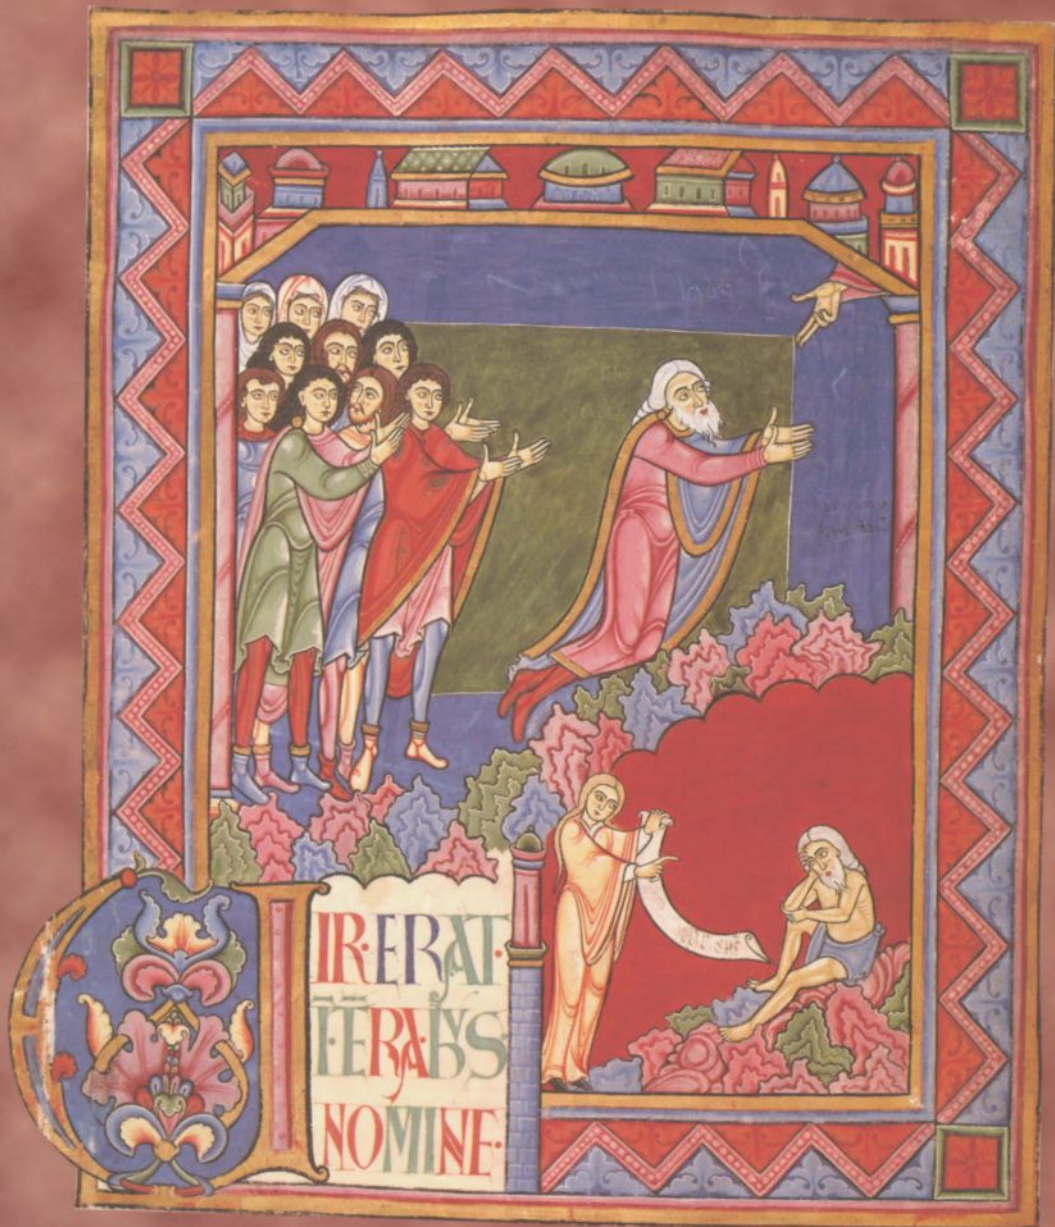 VIR·ERAT·
Ī·TĒRA·hVS
NOMINE·